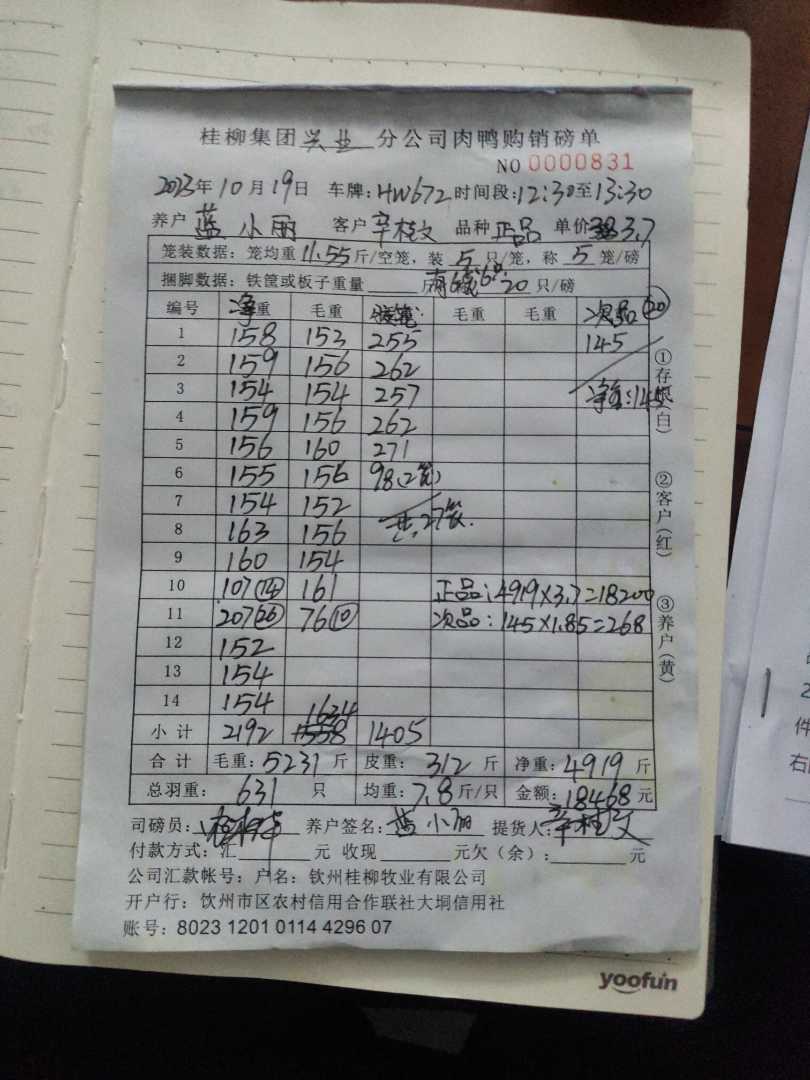 桂柳集团兴业分公司肉鸭购销磅单
NO 0000831
2023年10月19日 车牌:HW672 时间段:12:30至13:30
养户 蓝小丽 客户 辛桂文 品种 正品 单价 3.7
笼装数据:笼均重11.55斤/空笼,装 5 只/笼,称 5 笼/磅
捆脚数据:铁筐或板子重量 斤 20 只/磅
编号 净重 毛重 毛重 毛重 次品(20)
1 158 153 255 145
2 159 156 262
3 154 154 257 净重:145
4 159 156 262
5 156 160 271
6 155 156 98(2笼)
7 154 152 共27笼.
8 163 156
9 160 154
10 107(14) 161 正品:4919×3.7=18200
11 207(26) 76(10) 次品:145×1.85=268
12 152
13 154
14 154 1634
小计 2192 1558 1405
合计 毛重:5231斤 皮重:312斤 净重:4919斤
总羽重: 631 只 均重:7.8斤/只 金额:18468元
司磅员: 养户签名:蓝小丽 提货人:辛桂文
付款方式:汇 元 收现 元欠(余): 元
公司汇款帐号:户名:钦州桂柳牧业有限公司
开户行:钦州市区农村信用合作联社大垌信用社
账号:8023 1201 0114 4296 07
①存根(白)
②客户(红)
③养户(黄)
yoofun
件
右